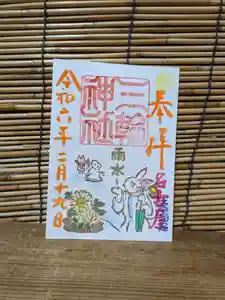 奉拝
名古屋
三輪神社
雨水
令和六年二月十九日